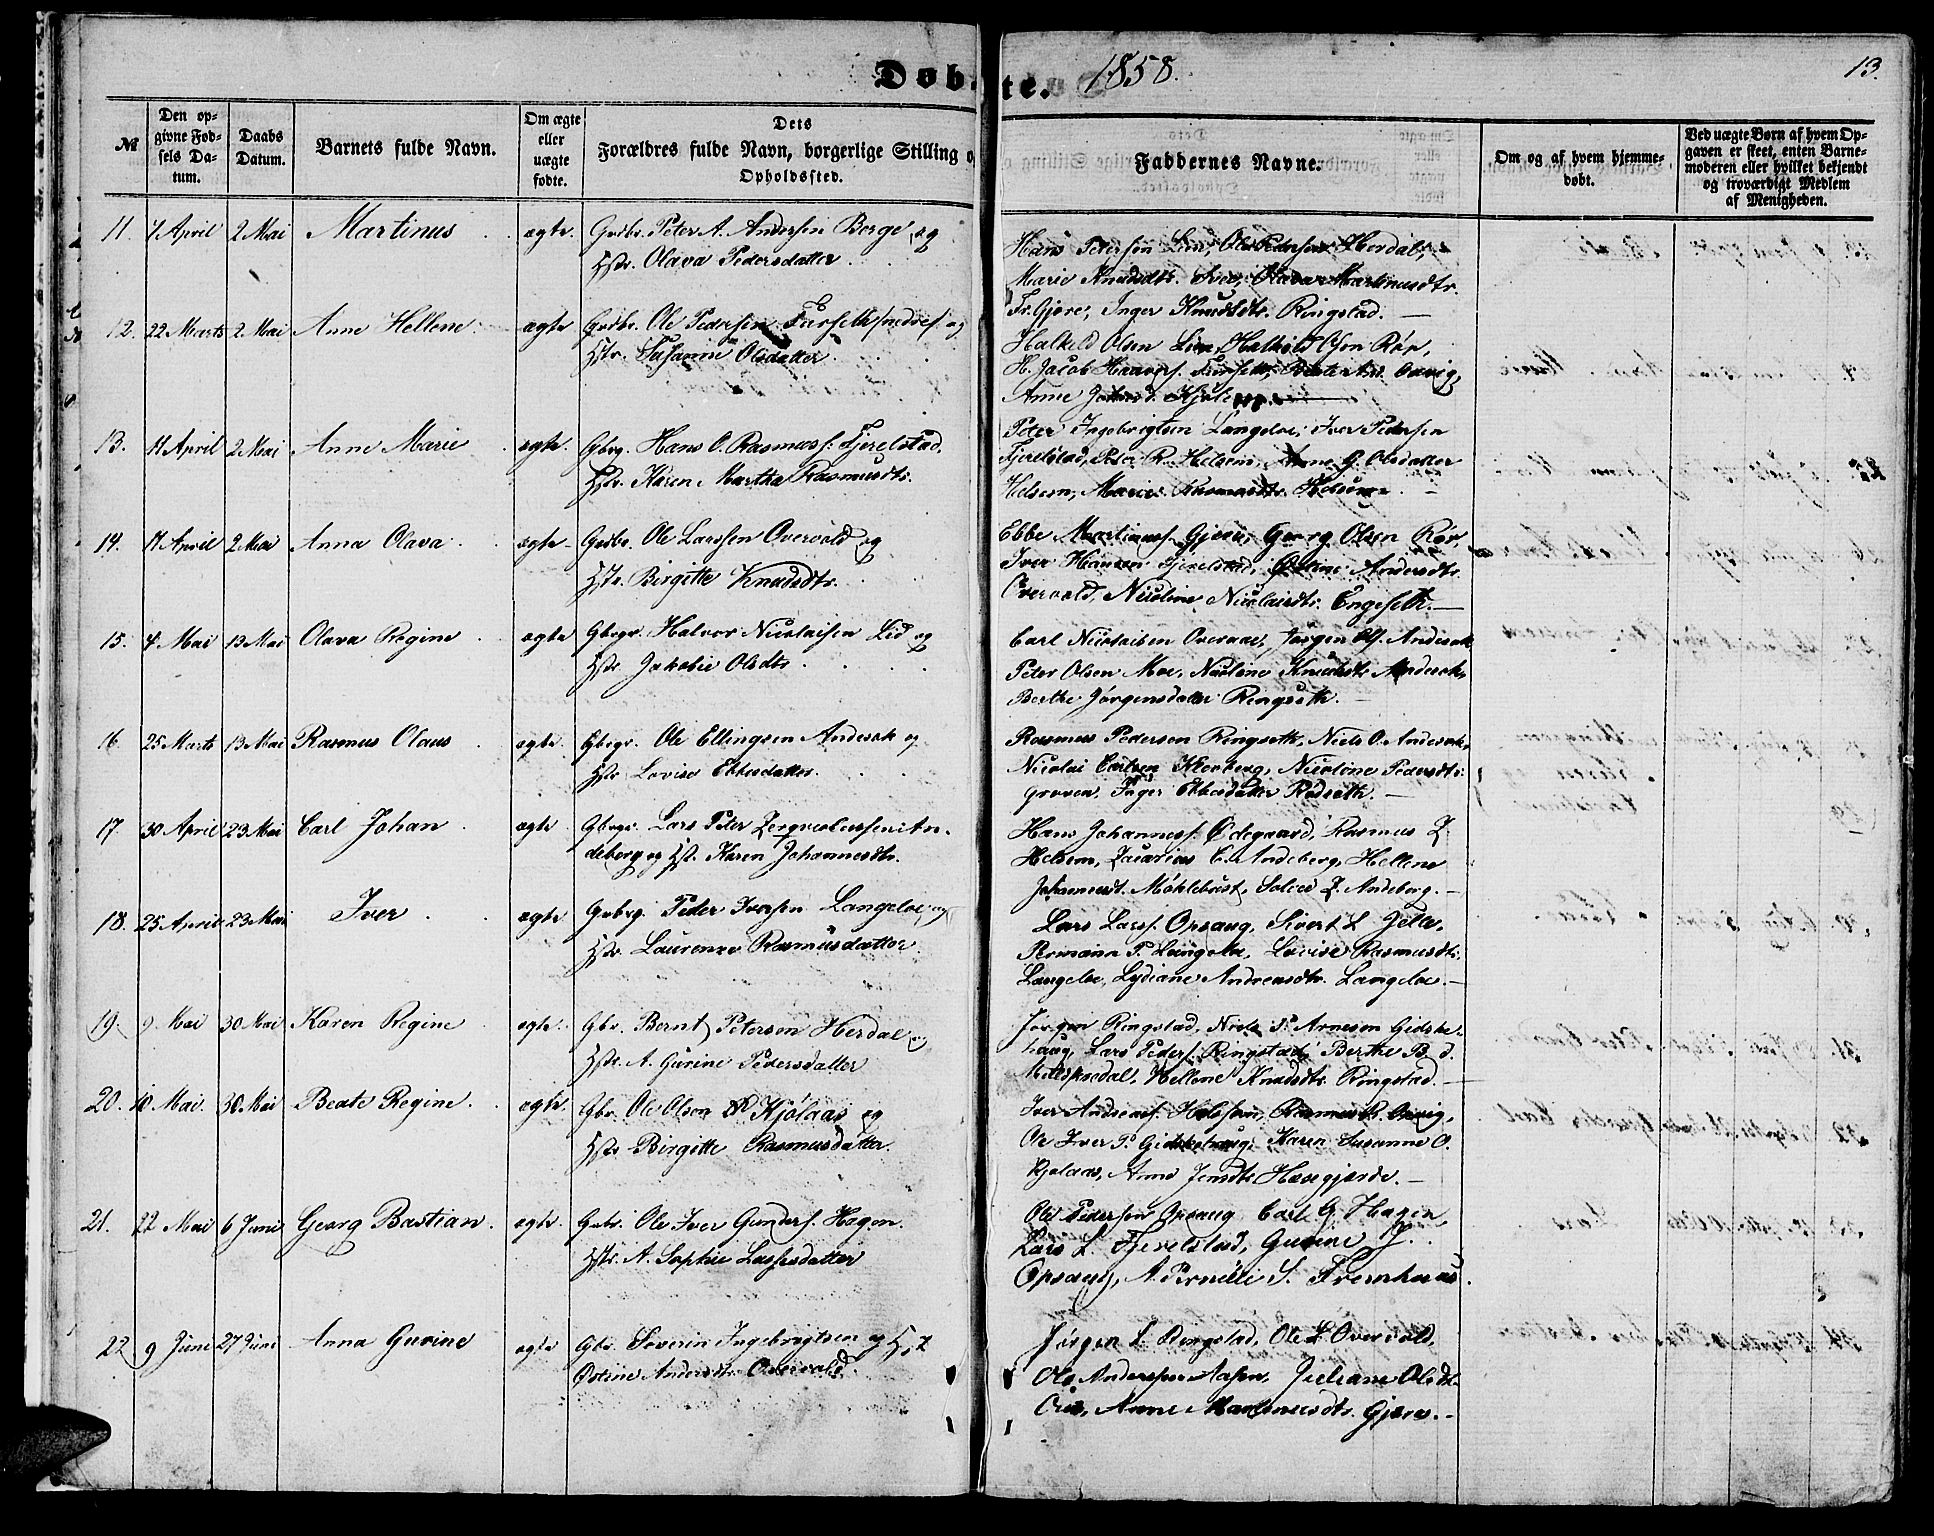 Døbte. 1858. 13.
№
Den opgivne Fødsels Datum.
Daabs Datum.
Barnets fulde Navn.
Om ægte eller uægte fødte.
Dets Forældres fulde Navn, borgerlige Stilling og Opholdssted.
Faddernes Navne.
Om og af hvem hjemmedøbt.
Ved uægte Børn af hvem Opgaven er skeet, enten Barnemoderen eller hvilket bekjendt og troværdigt Medlem af Menigheden.
11. 7 April 2 Mai Martinus ægte. Grdbr. Peter A. Andersen Berge, og
Hstr. Olava Pedersdatter.
Hans Petersen Lien, Ole Pedersen Herdal,
Marie Knudsdtr. Olava Martinusdtr.
Gjøre, Inger Knudsdtr. Ringstad.
12. 22 Marts 2 Mai Anne Hellene ægte Grdbr. Ole Pedersen Furseth nedre og
Hstr. Susanne Olsdatter.
Halkild Olsen Lien, Halkild Olsen Rør,
H. Jacob Furseth,
Anne
13. 11 April 2 Mai Anne Marie ægte. Gbrg. Hans O. Rasmuss. Fjerelstad.
Hstr. Karen Martha Rasmusdtr.
Peter Ingebrigtsen Langelve, Iver Pedersen
Fjerelstad, Peter R. Helsem, Anne G. Olsdatter
Helsem, Marie Helsem.
14. 17 April 2 Mai Anna Olava ægte Grdbr. Ole Larssen Overvold og
Hstr. Birgitte Knudsdtr.
Ebbe Martinuss. Gjøre, Georg Olsen Rør,
Iver Hansen Fjerelstad, Østine Andersdtr.
Overvold, Nicoline Nicolaisdtr. Engeseth.
15. 4 Mai 13 Mai Olava Regine ægte Gbrgr. Halvor Nicolaisen Lid og
Hstr. Jakobie Olsdtr.
Carl Nicolaisen Overaae, Jørgen Ols. Andersak
Peter Olsen Moe, Nicoline Knudsdtr Andersak,
Berthe Jørgensdatter Ringseth.
16. 25 Marts 13 Mai Rasmus Olaus ægte. Gbrgr. Ole Ellingsen Andersak og
Hstr. Lovise Ebbesdatter.
Rasmus Pedersen Ringseth, Niels O. Andersak,
Nicolai Carlsen Klenberg, Nicoline Pedersdtr.
Groven, Inger Ebbesdatter Rødseth.
17. 30 April 23 Mai Carl Johan ægte Gbrgr. Lars Peter An-
deberg og Hst. Karen Johannesdtr.
Hans Johanness. Ødegaard, Rasmus Z.
Helsem, Zacarias C. Andeberg, Hellene
Johannesdt. Møhlebust, Z. Andeberg.
18. 25 April 23 Mai Iver ægte Gbrg. Peder Iversen Langelve, og
Hstr. Laurense Rasmusdatter.
Lars Larss. Opsaug, Sivert L. Zelle,
P. Langelve, Lovise Rasmusdtr.
Langelve, Lydiane Andreasdtr. Langelve.
19. 9 Mai 30 Mai Karen Regine ægte. Gbr. Bernt Petersen Herdal og
Hstr. A. Gurine Pedersdatter
Jørgen Ringstad, Niels P. Arnesen Gidske-
haug, Lars Peders. Ringstad, Berthe B. d.
Hellene Knudsdtr. Ringstad.
20. 10. Mai. 30 Mai Beate Regine ægte. Gbr. Ole Olsen Kjølaas og
Hstr. Birgitte Rasmusdatter.
Iver Andreass. Helsem, Rasmus R.
Ole Iver P. Gidskehaug, Karen Susanne O.
Kjølaas, Anne Jensdtr. Hasegjærde.
21. 22 Mai 6 Juni Georg Bastian ægte. Gbr. Ole Iver Gunders. Hagen.
Hstr. A. Sophie Lassesdatter
Ole Pedersen Opsaug Carl G. Hagen,
Lars L. Fjerelstad, Gurine J.
Opsaug, A. Pernille S. Fremhuus.
22. 9 Juni 27 Juni Anna Gurine ægte Gbr. Severin Ingebrigtsen og Hst
Østine Andersdtr. Overvold.
Jørgen L. Ringstad, Ole L. Overvold,
Ole Anderssen Aasen, Juliane Olsdt.
Anne Martinusdtr. Gjøre.